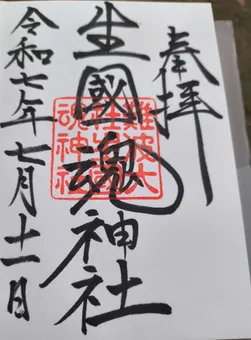 奉拝
生國魂神社
令和七年七月十一日
難波大
社生國
魂神社